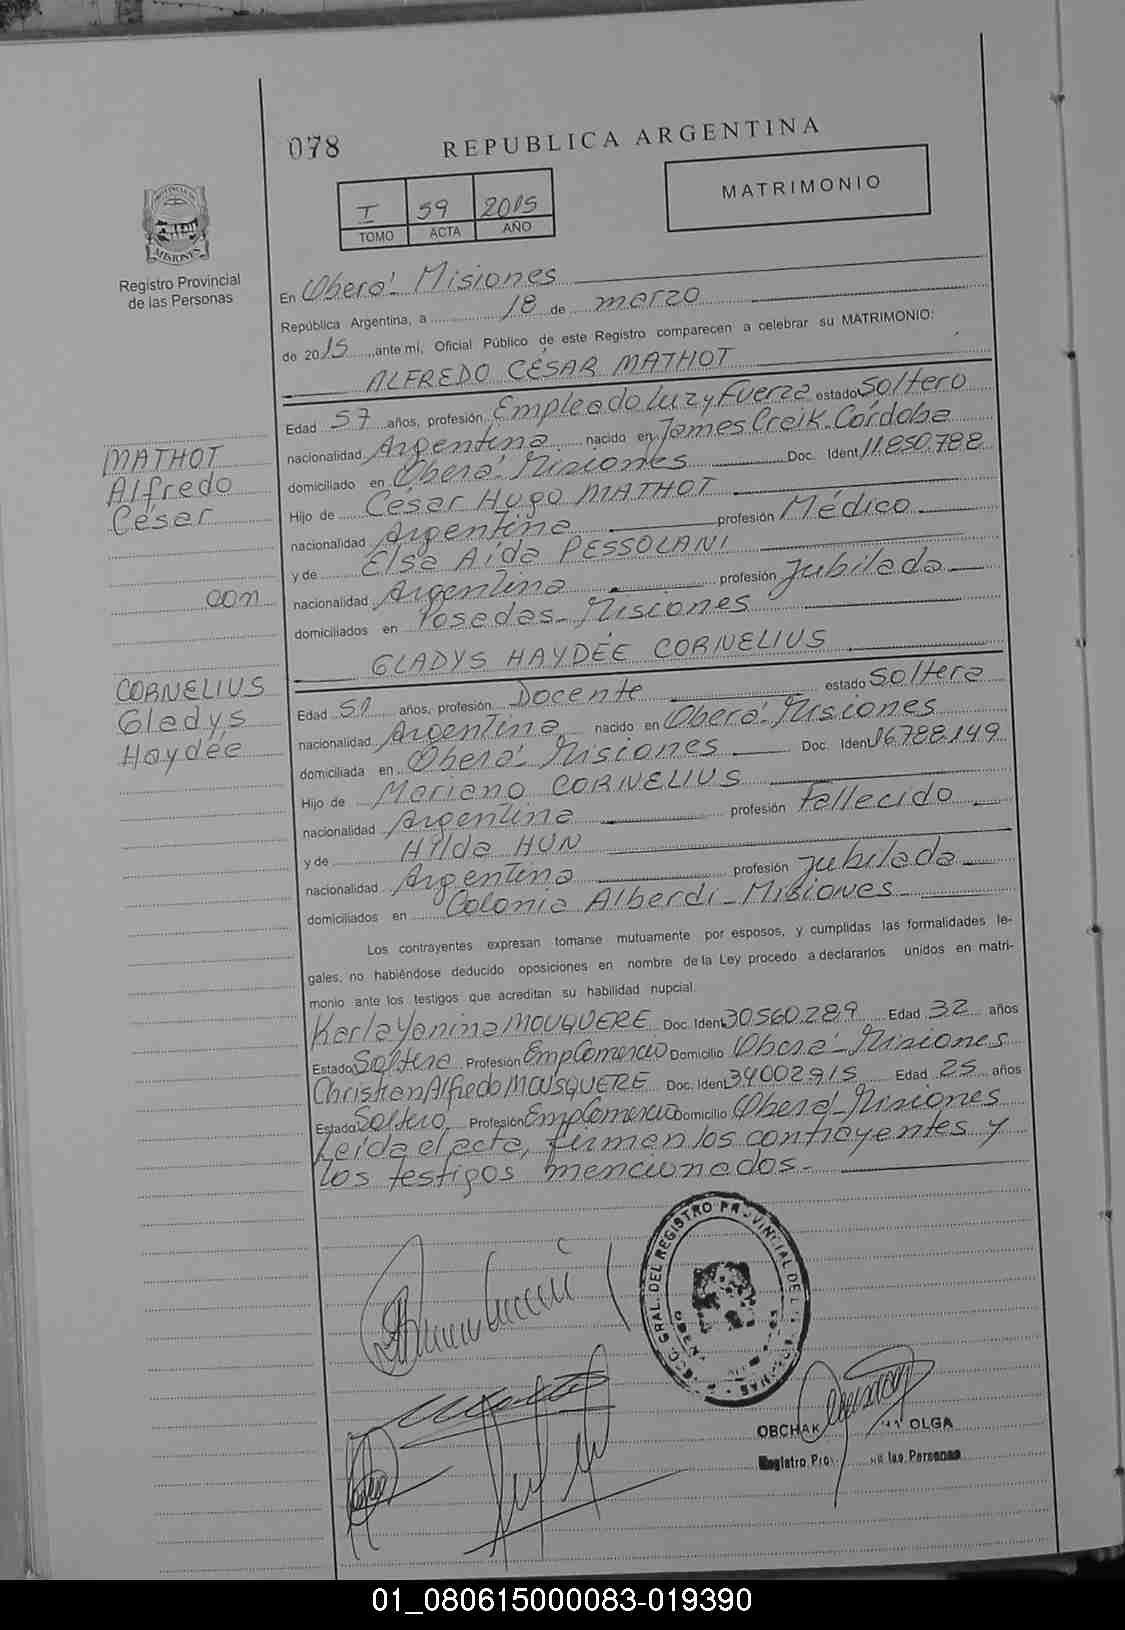 078
REPUBLICA ARGENTINA
I 59 2015
TOMO ACTA AÑO
MATRIMONIO
PROVINCIA DE
MISIONES
Registro Provincial
de las Personas
En Oberá - Misiones
República Argentina, a 18 de marzo
de 2015, ante mí, Oficial Público de este Registro comparecen a celebrar su MATRIMONIO:
ALFREDO CÉSAR MATHOT
Edad 57 años, profesión Empleado Luz y Fuerza estado Soltero
nacionalidad Argentina nacido en James Creik - Córdoba
domiciliado en Oberá - Misiones Doc. Ident 11.850.788
Hijo de César Hugo MATHOT
nacionalidad Argentina profesión Médico
y de Elsa Aída PESSOLANI
nacionalidad Argentina profesión Jubilada
domiciliados en Posadas - Misiones
GLADYS HAYDÉE CORNELIUS
Edad 51 años, profesión Docente estado Soltera
nacionalidad Argentina nacido en Oberá - Misiones
domiciliada en Oberá - Misiones Doc. Ident 16788149
Hijo de Mariano CORNELIUS
nacionalidad Argentina profesión Fallecido
y de Hilda HUN
nacionalidad Argentina profesión Jubilada
domiciliados en Colonia Alberdi - Misiones
MATHOT
Alfredo
César
con
CORNELIUS
Gladys
Haydée
Los contrayentes expresan tomarse mutuamente por esposos, y cumplidas las formalidades le-
gales, no habiéndose deducido oposiciones en nombre de la Ley procedo a declararlos unidos en matri-
monio ante los testigos que acreditan su habilidad nupcial.
Karla Yanina MOUQUERE Doc. Ident 30560.289 Edad 32 años
Estado Soltera Profesión Emp Comercio Domicilio Oberá - Misiones
Christian Alfredo MOUSQUERE Doc. Ident 34002.915 Edad 25 años
Estado Soltero Profesión Emp Comercio Domicilio Oberá - Misiones
Leída el acta, firman los contrayentes y
los testigos mencionados.-
GRAL. DEL REGISTRO PROVINCIAL DE
OBCHAK OLGA
Registro Pro las Personas
01_080615000083-019390